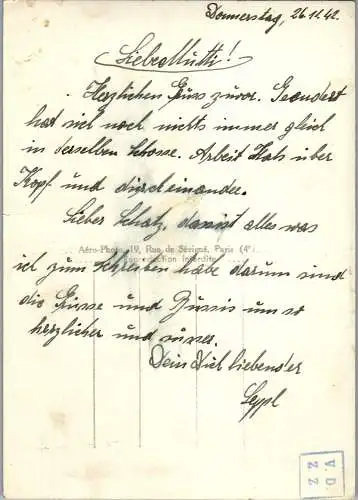 Donnerstag, 26.11.42.
Liebe Mutti!
Herzlichen Gruss zuvor. Geändert
hat sich noch nichts immer gleich
in derselben Schose. Arbeit Hals über
Kopf und durcheinander.
Lieber Schatz, das ist alles was
Aéro-Photo, 19, Rue de Sévigné, Paris (4e)
Reproduction Interdite
ich zum Schreiben habe darum sind
die Grüsse und Bussis um so
herzlicher und süsser.
Dein Dich liebender
Seppl
V. D.
Z Z